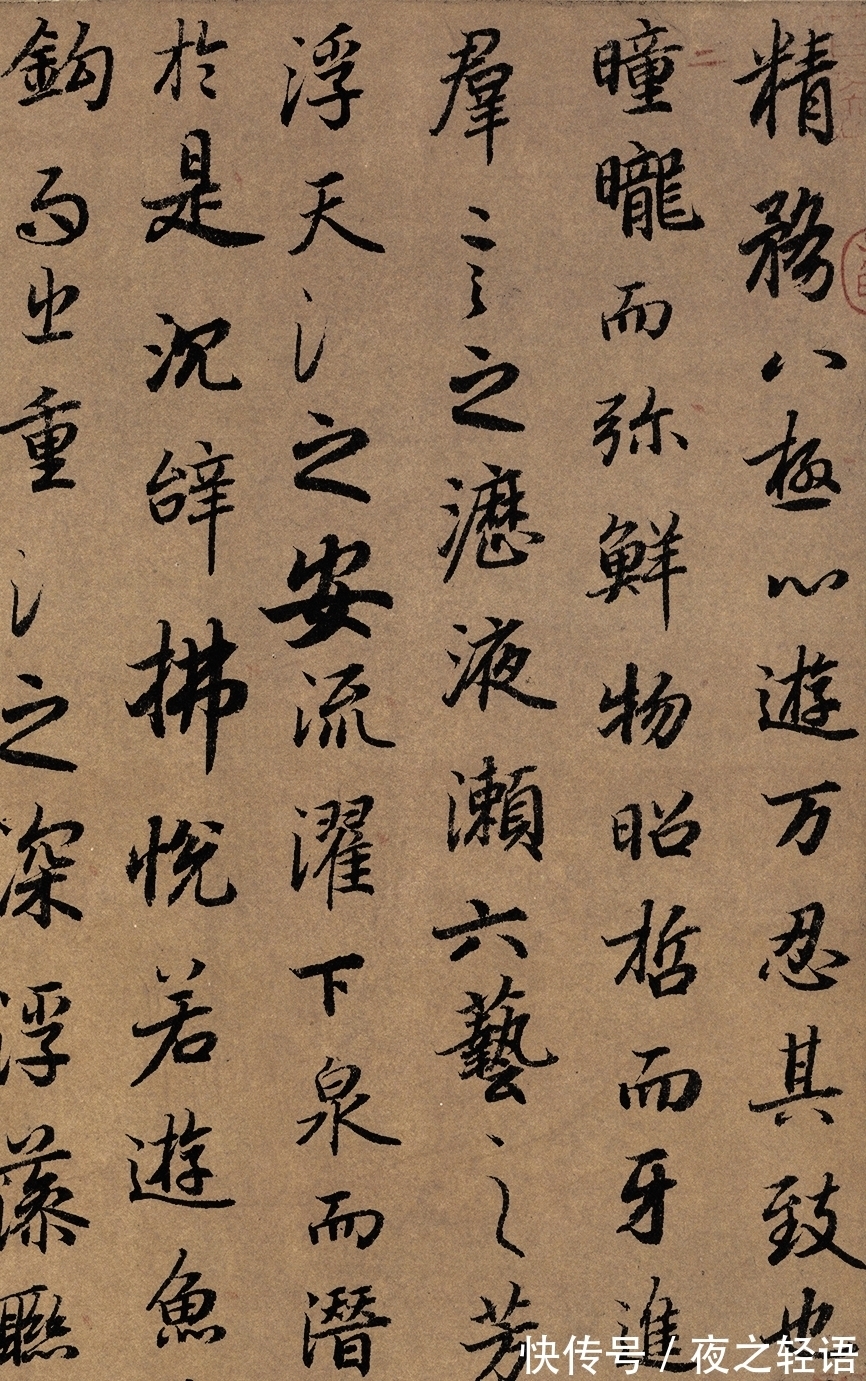 精務八極心遊万忍其致也
二
曈曨而弥鮮物昭哲而牙進
羣言之瀝液瀬六藝之芳
浮天氵之安流濯下泉而潛
於是沉辝拂悅若遊魚
鈎而出重氵之深浮藻聯
快传号 / 夜之轻语